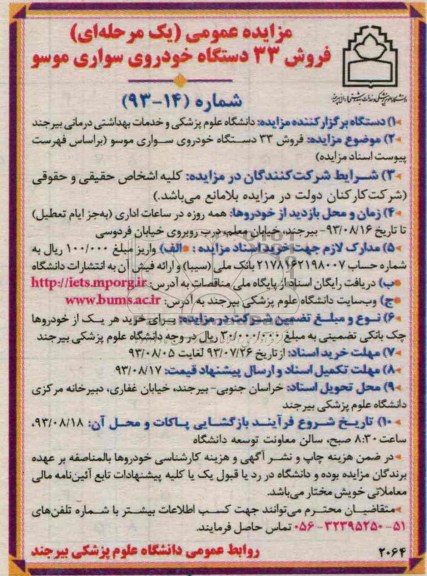 مزایده عمومی (یک مرحله‌ای)
فروش ۳۳ دستگاه خودروی سواری موسو
شماره (۱۴-۹۳)
۱) دستگاه برگزارکننده مزایده: دانشگاه علوم پزشکی و خدمات بهداشتی درمانی بیرجند
۲) موضوع مزایده: فروش ۳۳ دستگاه خودروی سواری موسو (براساس فهرست
پیوست اسناد مزایده)
۳) شرایط شرکت‌کنندگان در مزایده: کلیه اشخاص حقیقی و حقوقی
(شرکت کارکنان دولت در مزایده بلامانع می‌باشد.)
۴) زمان و محل بازدید از خودروها: همه روزه در ساعات اداری (به‌جز ایام تعطیل)
تا تاریخ ۹۳/۰۸/۱۶- بیرجند، خیابان معلم، درب روبروی خیابان فردوسی
۵) مدارک لازم جهت خرید اسناد مزایده: الف) واریز مبلغ ۱۰۰/۰۰۰ ریال به
شماره حساب ۲۱۷۸۱۶۲۱۹۸۰۰۷ بانک ملی (سیبا) و ارائه فیش آن به انتشارات دانشگاه
ب) دریافت رایگان اسناد از پایگاه ملی مناقصات به آدرس: http://iets.mporg.ir
ج) وبسایت دانشگاه علوم پزشکی بیرجند به آدرس: www.bums.ac.ir
۶) نوع و مبلغ تضمین شرکت در مزایده: برای خرید هر یک از خودروها
چک بانکی تضمینی به مبلغ ۳۰/۰۰۰/۰۰۰ ریال در وجه دانشگاه علوم پزشکی بیرجند
۷) مهلت خرید اسناد: از تاریخ ۹۳/۰۷/۲۶ لغایت ۹۳/۰۸/۰۵
۸) مهلت تکمیل اسناد و ارسال پیشنهاد قیمت: ۹۳/۰۸/۱۷.
۹) محل تحویل اسناد: خراسان جنوبی- بیرجند، خیابان غفاری، دبیرخانه مرکزی
دانشگاه علوم پزشکی بیرجند
۱۰) تاریخ شروع فرآیند بازگشایی پاکات و محل آن: ۹۳/۰۸/۱۸.
ساعت ۸:۳۰ صبح، سالن معاونت توسعه دانشگاه
در ضمن هزینه چاپ و نشر آگهی و هزینه کارشناسی خودروها بالمناصفه بر عهده
برندگان مزایده بوده و دانشگاه در رد یا قبول یک یا کلیه پیشنهادات تابع آئین‌نامه مالی
معاملاتی خویش مختار می‌باشد.
متقاضیان محترم می‌توانند جهت کسب اطلاعات بیشتر با شماره تلفن‌های
۰۵۶-۳۲۳۹۵۲۵۰-۵۱ تماس حاصل فرمایند.
روابط عمومی دانشگاه علوم پزشکی بیرجند
۲۰۶۴